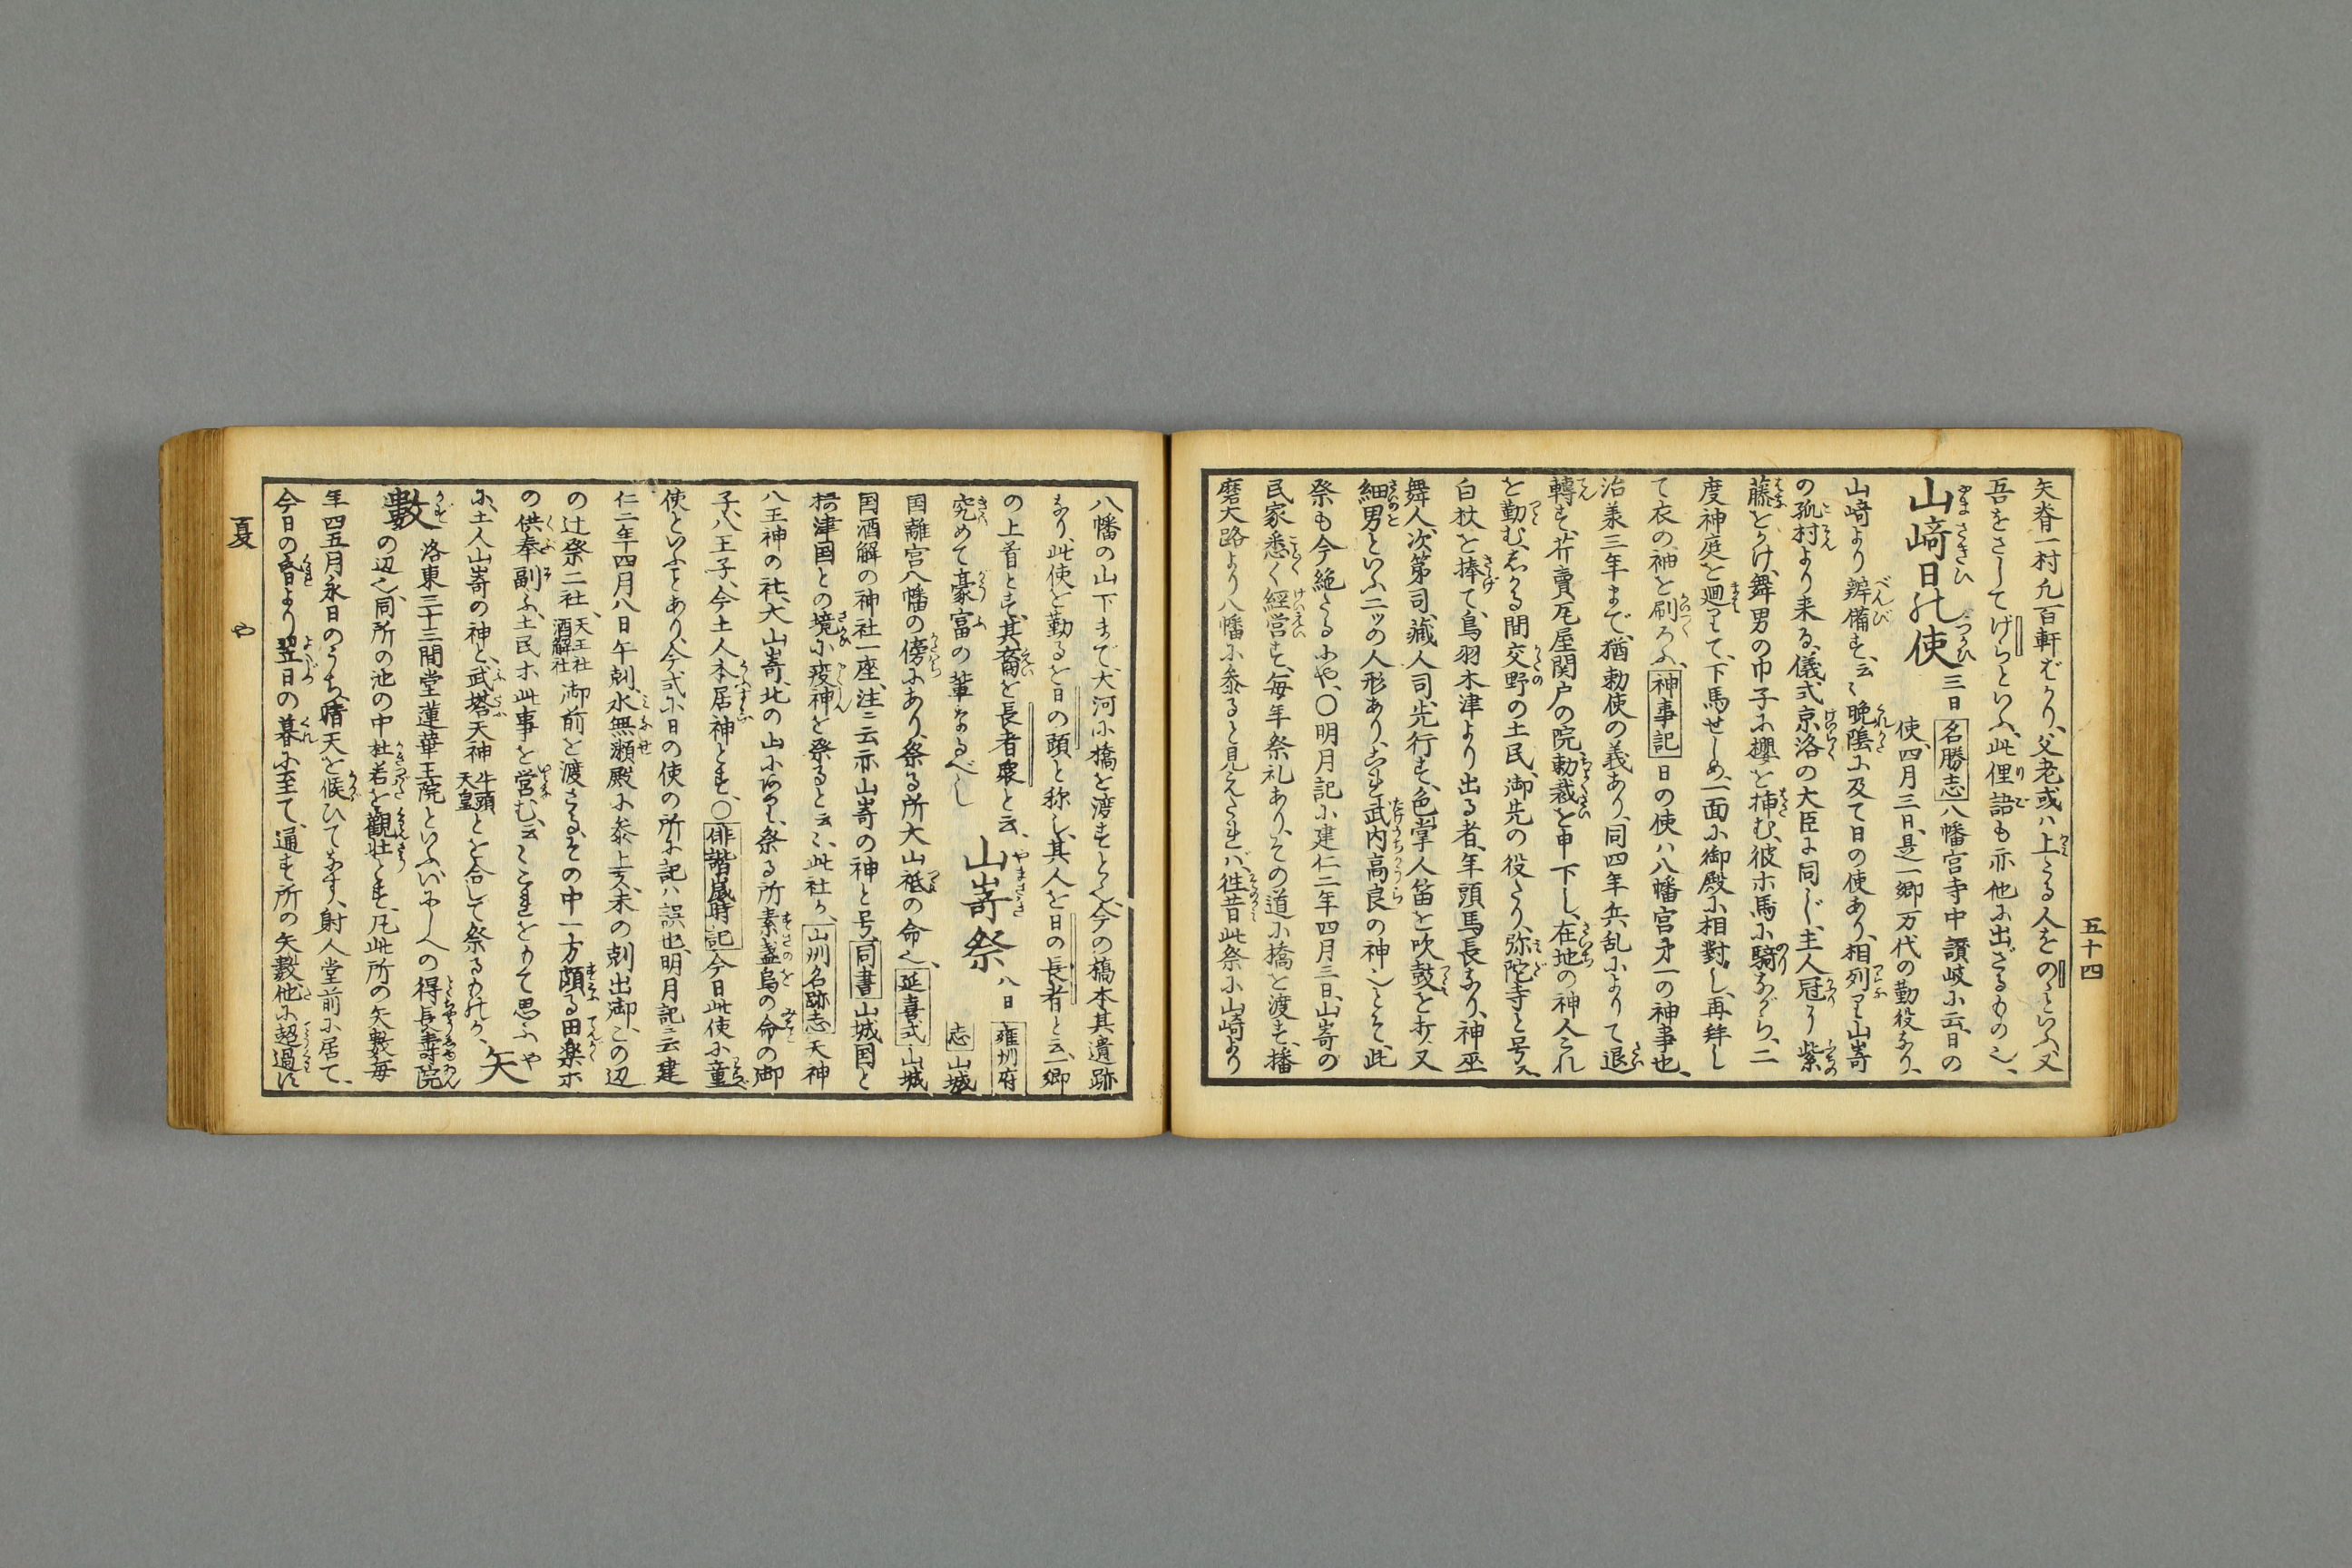 五十四
矢脊一村凡百軒ばかり、父老或ハ上たる人をのゝといふ又
吾をさしてげらといふ、此俚語も亦他に出ざるもの也、
山﨑日の使 三日 名勝志 八幡宮寺中讃岐に云、日の
使、四月三日、是一郷万代の勤役なり、
山﨑より辨備す、云々晩陰に及て日の使あり、相列り山嵜
の孤村より来る、儀式京洛の大臣に同じ、主人冠り紫
藤をかけ、舞男の巾子に櫻を挿む、彼ホ馬に騎ながら、二
度神庭を廻りて、下馬せしめ、一面に御殿に相對し、再拜し
て衣の袖を刷ろふ、神事記 日の使ハ八幡宮第一の神事也、
治兼三年まで、猶勅使の義あり、同四年兵乱によりて退
轉す、芥賣瓦屋関戸の院、勅裁を申下し、在地の神人これ
を勤む、しかる間交野の土民、御先の役たり、弥陀寺と号ス、
白杖を捧て、鳥羽木津より出る者、年頭馬長なり、神巫
舞人、次第司、藏人司、先行す、色掌人笛を吹、鼓をす、又
細男といふ二ッの人形あり、これ武内高良の神也とそ、此
祭も今絶たるにや、〇明月記に建仁二年四月三日、山嵜の
民家悉く經営す、毎年祭礼あり、その道に橋を渡す、播
磨大路より八幡に参ると見えたれバ、徃昔此祭に山﨑より
八幡の山下まで、大河に橋を渡すとへ今の橋本其遺跡
なり、此使を勤るを日の頭と称し、其人を日の長者と云、一郷
の上首とす、其裔を長者衆と云、山嵜祭 八日 雍州府
究めて豪富の輩なるべし 志 山城
国離宮八幡の傍にあり、祭る所大山祗の命也、延喜式 山城
国酒解の神社一座、注ニ云亦山嵜の神と号、同書 山城国と
摂津国との境に疫神を祭ると云々、此社か、山州名跡志 天神
八王神の社、大山嵜、北の山にあり、祭る所素盞烏の命の御
子、八王子、今土人本居神とす、〇俳諧歳時記 今日此使に童
使といふとあり、今式に日の使の所に記ハ誤也、明月記ニ云建
仁二年四月八日午剋、水無瀬殿に参上、未の剋出御、この辺
の辻祭二社、天王社酒解社 御前を渡さる、その中一方頗る田楽ホ
の供奉副ふ、土民ホ此事を営む、云々これをもて思ふ
に、土人山嵜の神と、武塔天神牛頭天皇とを合して祭るものか、矢
數 洛東三十三間堂蓮華王院といふいにしへの得長壽院
の辺也、同所の池の中杜若を觀壮とす、凡此所の矢數毎
年四五月永日のうち、晴天を候ひてなす、射人堂前に居て、
今日の昏より翌日の暮に至て、通す所の矢數、他に超過に
夏
や